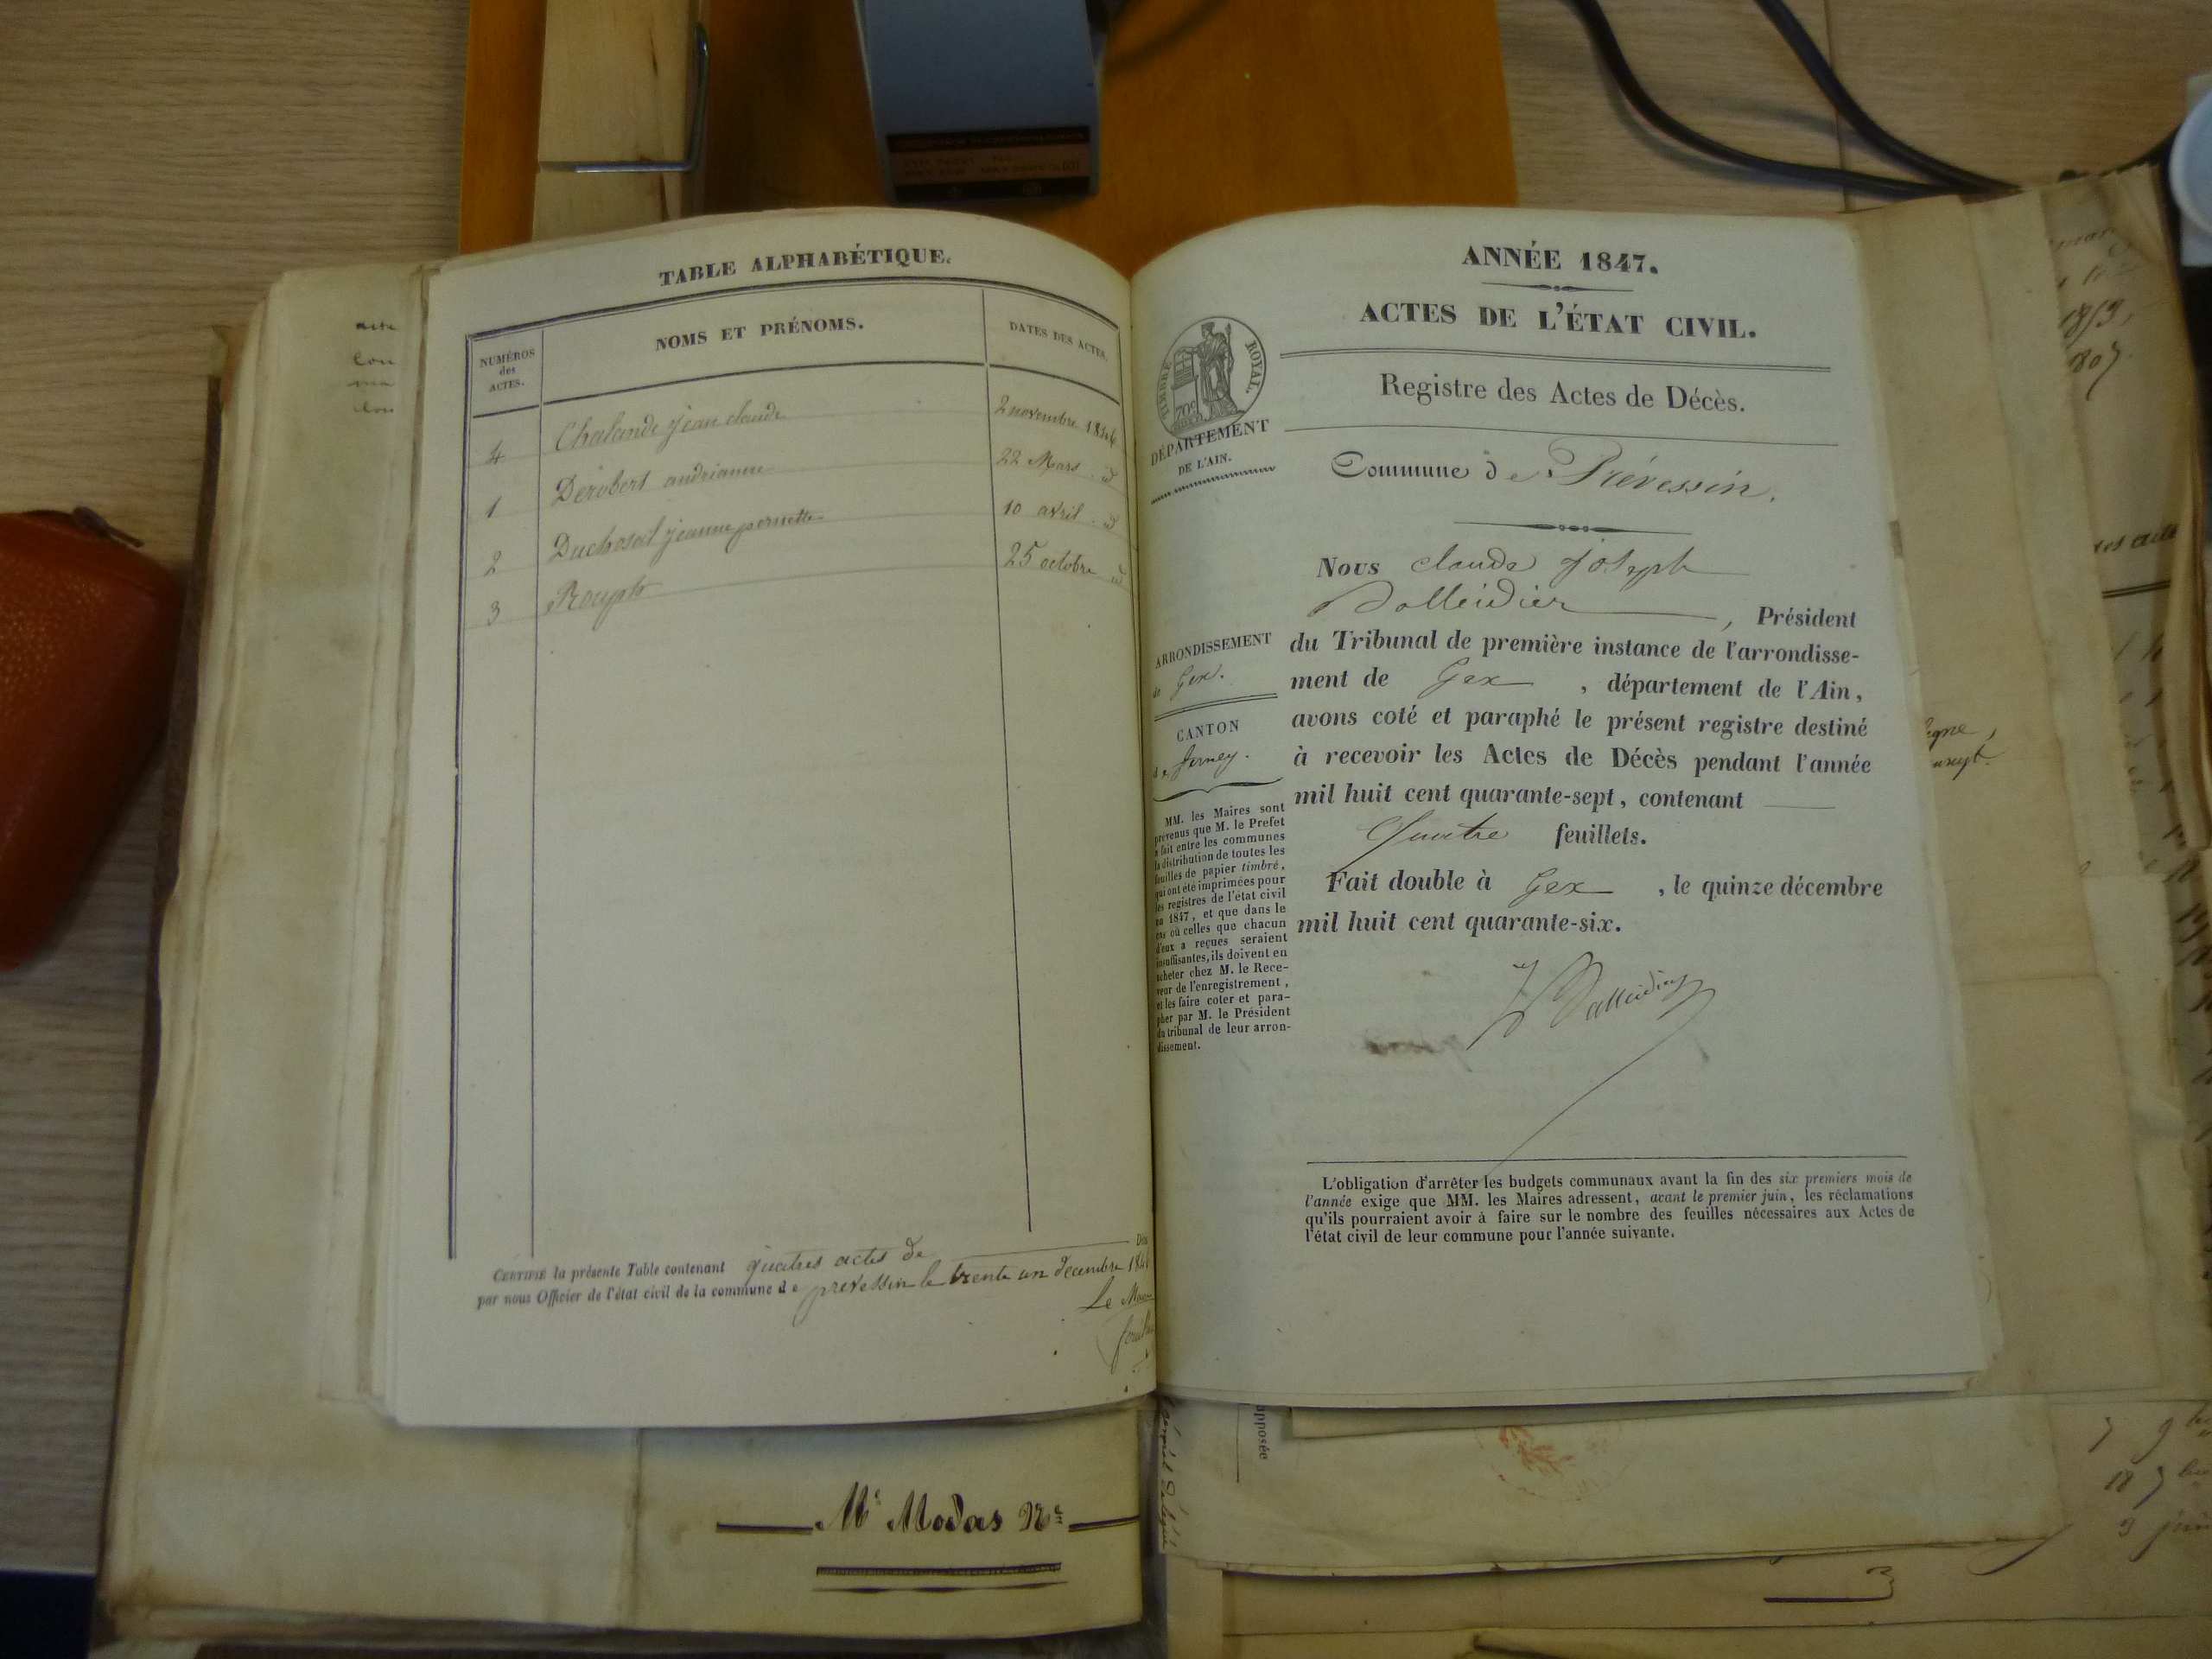 TABLE ALPHABÉTIQUE.
NUMÉROS
des
ACTES.
NOMS ET PRÉNOMS.
DATES DES ACTES.
4 Chalande jean claude 2 novembre 1846
1 Derobert andrianne 22 Mars id
2 Duchosal jeanne pernette 10 avril id
3 25 octobre id
CERTIFIÉ la présente Table contenant quatres actes de
par nous Officier de l'état civil de la commune de prevessin le trente un decembre 1846
Le
ANNÉE 1847.
ACTES DE L'ÉTAT CIVIL.
TIMBRE ROYAL.
70c
DÉPARTEMENT
DE L'AIN.
Registre des Actes de Décès.
Commune de Prévessin.
Nous claude Joseph
Dalleidier, Président
du Tribunal de première instance de l'arrondisse-
ment de Gex, département de l'Ain,
avons coté et paraphé le présent registre destiné
à recevoir les Actes de Décès pendant l'année
mil huit cent quarante-sept, contenant
Quatre feuillets.
Fait double à Gex, le quinze décembre
mil huit cent quarante-six.
Dalleidier
ARRONDISSEMENT
de Gex.
CANTON
de ferney.
MM. les Maires sont
prévenus que M. le Prefet
a fait entre les communes
la distribution de toutes les
feuilles de papier timbré,
qui ont été imprimées pour
les registres de l'état civil
en 1847, et que dans le
cas où celles que chacun
d'eux a reçues seraient
insuffisantes, ils doivent en
acheter chez M. le Rece-
veur de l'enregistrement,
et les faire coter et para-
pher par M. le Président
du tribunal de leur arron-
dissement.
L'obligation d'arrêter les budgets communaux avant la fin des six premiers mois de
l'année exige que MM. les Maires adressent, avant le premier juin, les réclamations
qu'ils pourraient avoir à faire sur le nombre des feuilles nécessaires aux Actes de
l'état civil de leur commune pour l'année suivante.
apposée
Me Modas Nre